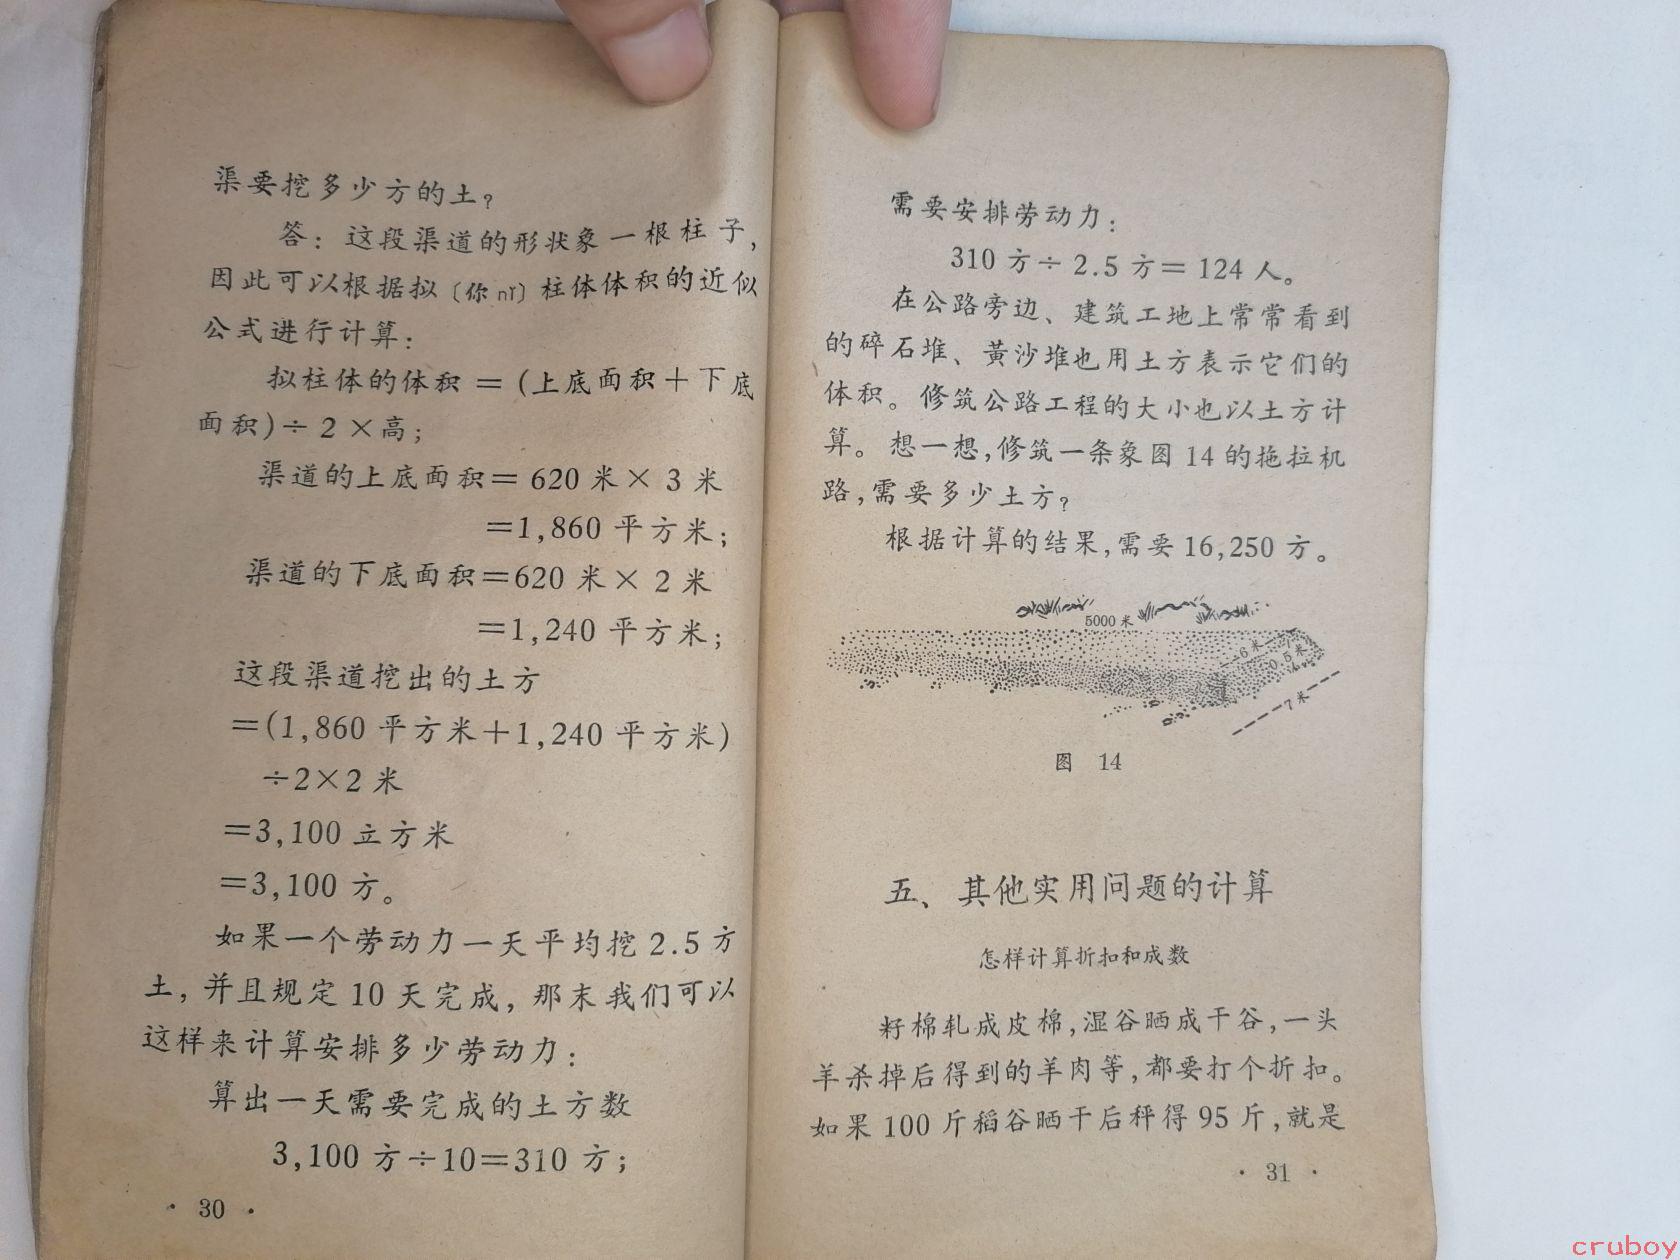 渠要挖多少方的土？
答：这段渠道的形状象一根柱子，
因此可以根据拟〔你nǐ〕柱体体积的近似
公式进行计算：
拟柱体的体积＝(上底面积＋下底
面积)÷2×高；
渠道的上底面积＝620米×3米
＝1,860平方米；
渠道的下底面积＝620米×2米
＝1,240平方米；
这段渠道挖出的土方
＝(1,860平方米＋1,240平方米)
÷2×2米
＝3,100立方米
＝3,100方。
如果一个劳动力一天平均挖2.5方
土，并且规定10天完成，那末我们可以
这样来计算安排多少劳动力：
算出一天需要完成的土方数
3,100方÷10＝310方；
·30·
需要安排劳动力：
310方÷2.5方＝124人。
在公路旁边、建筑工地上常常看到
的碎石堆、黄沙堆也用土方表示它们的
体积。修筑公路工程的大小也以土方计
算。想一想，修筑一条象图14的拖拉机
路，需要多少土方？
根据计算的结果，需要16,250方。
5000米
6米
0.5米
7米
图 14
五、其他实用问题的计算
怎样计算折扣和成数
籽棉轧成皮棉，湿谷晒成干谷，一头
羊杀掉后得到的羊肉等，都要打个折扣。
如果100斤稻谷晒干后秤得95斤，就是
·31·
cruboy